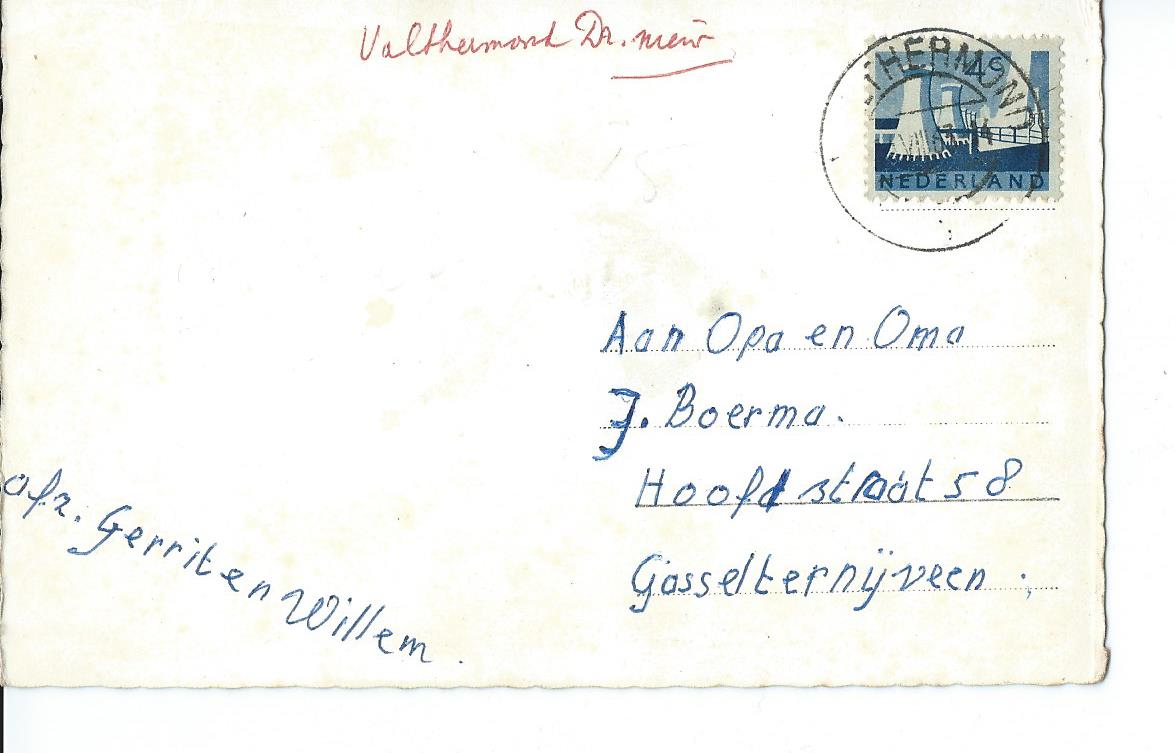 Valthermond Dr. nieuw
LTHERMOND
4c
VIII
NEDERLAND
Aan Opa en Oma
J. Boerma.
Hoofdstraat 58
Gasselternijveen
afz. Gerrit en Willem.